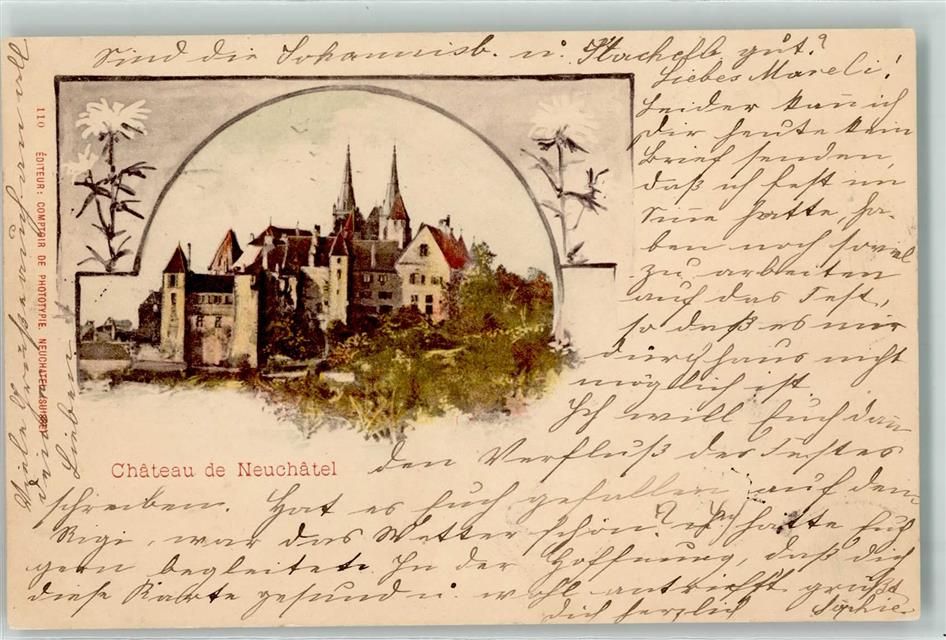 Sind die Johannisb. u. Stachelb gut?
Liebes Mareli!
Leider kann ich
Dir heute kein
Brief senden,
daß ich fest im
Sinne hatte, ha-
ben noch soviel
zu arbeiten
auf das Fest,
so daß es mir
durchaus nicht
möglich ist
Ich will Euch dan̄
den Verfluß des Festes
schreiben. Hat es Euch gefallen auf dem
Rigi, war das Wetter schön? Ich hatte Euch
gern begleitet. In der Hoffnung, daß dich
diese Karte gesund u. wohl antrifft grüßt
Dich herzlich Sophie
Viele Grüße
Lieben
110 ÉDITEUR: COMPTOIR DE PHOTOTYPIE, NEUCHATEL (SUISSE)
Château de Neuchâtel